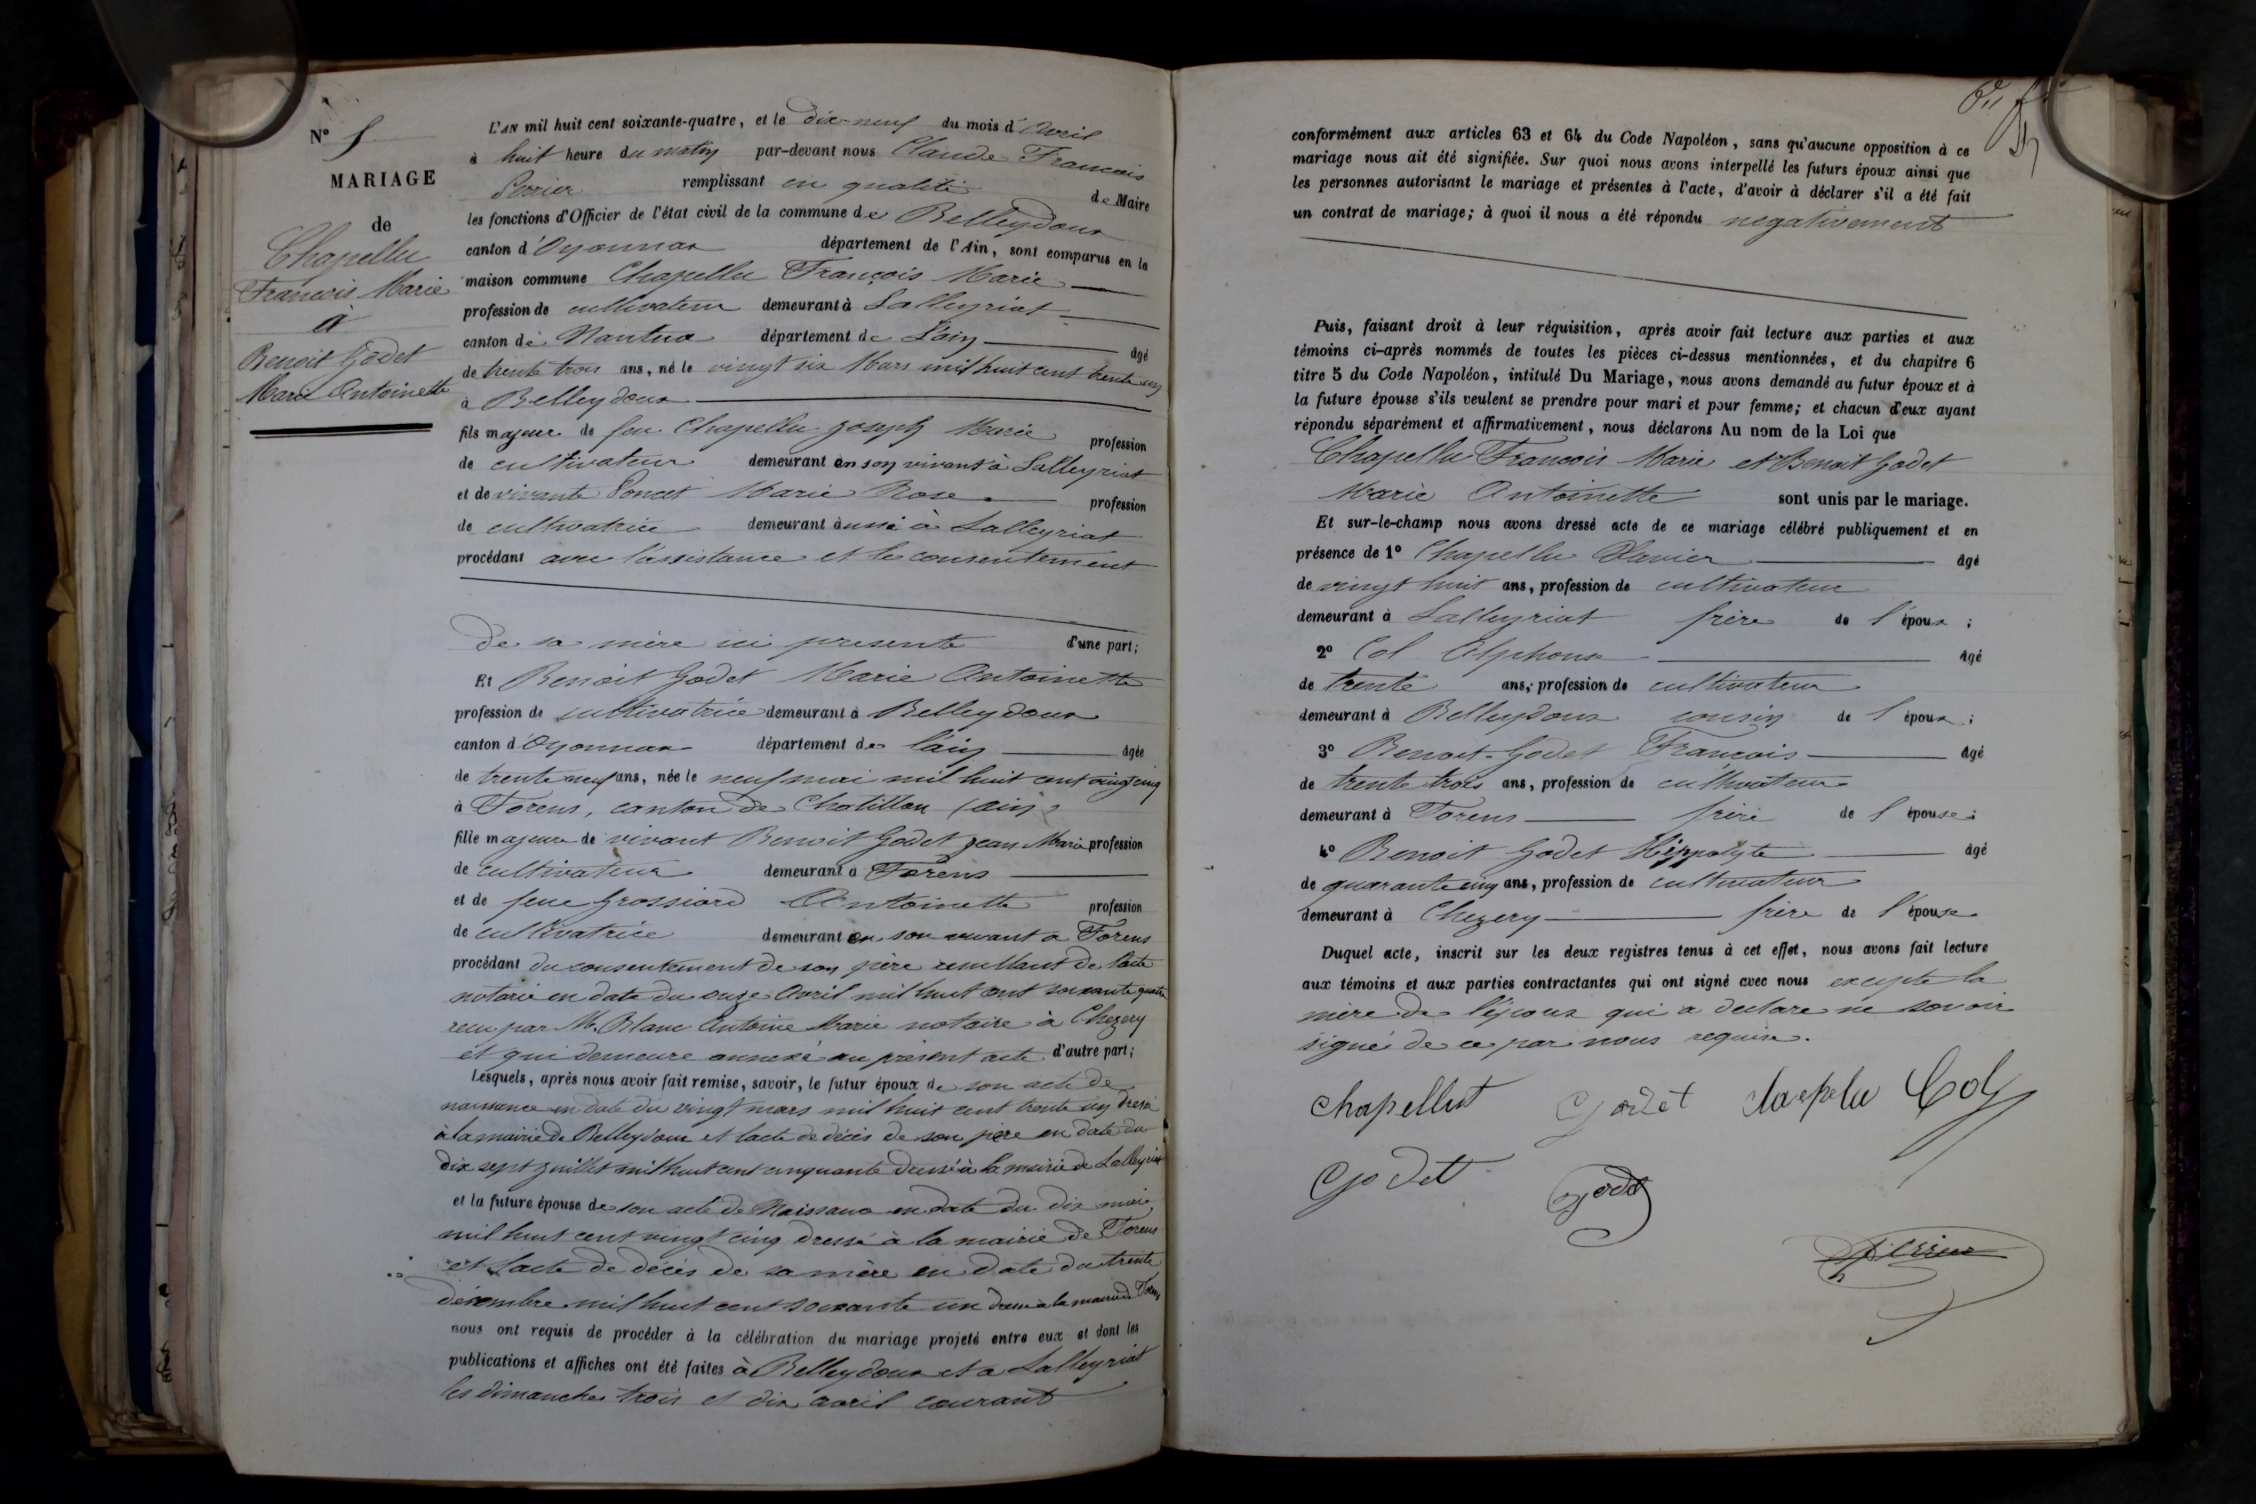 N° 5
MARIAGE
de
Chapellu
François Marie
à
Benoit Godet
Marie Antoinette
L'AN mil huit cent soixante-quatre, et le dix-neuf du mois d'Avril
à huit heure du matin par-devant nous Claude François
Perrier remplissant en qualité de Maire
les fonctions d'Officier de l'état civil de la commune de Belleydoux
canton d'Oyonnax département de l'Ain, sont comparus en la
maison commune Chapellu François Marie
profession de cultivateur demeurant à Lalleyriat
canton de Nantua département de l'ain âgé
de trente trois ans, né le vingt six Mars mil huit cent trente un
à Belleydoux
fils majeur de feu Chapellu Joseph Marie profession
de cultivateur demeurant en son vivant à Lalleyriat
et de vivante Poncet Marie Rose profession
de cultivatrice demeurant aussi à Lalleyriat
procédant avec l'assistance et le consentement
de sa mère ici presente d'une part;
Et Benoit Godet Marie Antoinette
profession de cultivatrice demeurant à Belleydoux
canton d'Oyonnax département de l'ain âgée
de trente neuf ans, née le neuf mai mil huit cent vingt cinq
à Forens, canton de Chatillon (ain)
fille majeure de vivant Benoit Godet Jean Marie profession
de cultivateur demeurant à Forens
et de feue Grossiord Antoinette profession
de cultivatrice demeurant en son vivant a Forens
procédant du consentement de son père resultant de l'acte
notarié en date du onze Avril mil huit cent soixante quatre
recu par M. Blanc Antoine Marie notaire à Chezery
et qui demeure annexé au présent acte d'autre part;
Lesquels, après nous avoir fait remise, savoir, le futur époux de son acte de
naissance en date du vingt mars mil huit cent trente un dressé
à la mairie de Belleydoux et l'acte de décès de son père en date du
dix sept Juillet mil huit cent cinquante dressé à la mairie de Lalleyriat
et la future épouse de son acte de Naissance en date du dix mai
mil huit cent vingt cinq dressé à la mairie de Forens
et l'acte de décès de sa mère en date du trente
décembre mil huit cent soixante un dressé à la mairie de Forens
nous ont requis de procéder à la célébration du mariage projeté entre eux et dont les
publications et affiches ont été faites à Belleydoux et a Lalleyriat
les dimanches trois et dix avril courant
conformément aux articles 63 et 64 du Code Napoléon, sans qu'aucune opposition à ce
mariage nous ait été signifiée. Sur quoi nous avons interpellé les futurs époux ainsi que
les personnes autorisant le mariage et présentes à l'acte, d'avoir à déclarer s'il a été fait
un contrat de mariage; à quoi il nous a été répondu négativement
Puis, faisant droit à leur réquisition, après avoir fait lecture aux parties et aux
témoins ci-après nommés de toutes les pièces ci-dessus mentionnées, et du chapitre 6
titre 5 du Code Napoléon, intitulé Du Mariage, nous avons demandé au futur époux et à
la future épouse s'ils veulent se prendre pour mari et pour femme; et chacun d'eux ayant
répondu séparément et affirmativement, nous déclarons Au nom de la Loi que
Chapellu François Marie et Benoit Godet
Marie Antoinette sont unis par le mariage.
Et sur-le-champ nous avons dressé acte de ce mariage célébré publiquement et en
présence de 1° Chapellu Xavier âgé
de vingt huit ans, profession de cultivateur
demeurant à Lalleyriat frère de l'époux;
2° Col Alphonse âgé
de trente ans, profession de cultivateur
demeurant à Belleydoux cousin de l'époux;
3° Benoit-Godet François âgé
de trente trois ans, profession de cultivateur
demeurant à Forens frère de l'épouse;
4° Benoit Godet Hippolyte âgé
de quarante cinq ans, profession de cultivateur
demeurant à Chezery frère de l'épouse
Duquel acte, inscrit sur les deux registres tenus à cet effet, nous avons fait lecture
aux témoins et aux parties contractantes qui ont signé avec nous excepté la
mère de l'époux qui a declaré ne savoir
signé de ce par nous requise.
Chapellut Godet Chapelu Col
Godet Godet
Perrier